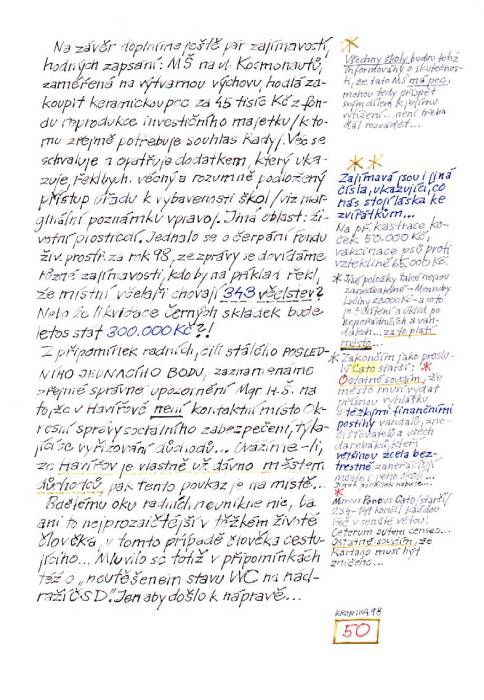 Na závěr doplníme ještě pár zajímavostí,
hodných zapsání: MŠ na ul. Kosmonautů,
zaměřená na výtvarnou výchovu, hodlá za-
koupit keramickou pec za 45 tisíc Kč z fon-
du reprodukce investičního majetku/k to-
mu zřejmě potřebuje souhlas Rady/. Věc se
schvaluje a opatřuje dodatkem, který uka-
zuje, řekl bych, věcný a rozumně podložený
přístup úřadu k vybavenosti škol/viz mar-
ginální poznámku vpravo/. Jiná oblast: ži-
votní prostředí. Jednalo se o čerpání Fondu
živ. prostř. za rok 98, ze zprávy se dovídáme
různé zajímavosti, kdo by na příklad řekl,
že místní včelaři chovají 343 včelstev?
Nebo že likvidace černých skládek bude
letos stát 300.000 Kč?!
Z připomínek radních, čili stálého POSLED-
NÍHO JEDNACÍHO BODU, zaznamenáme
zřejmě správné upozornění Mgr. H.Š. na
to, že v Havířově není kontaktní místo Ok-
resní správy sociálního zabezpečení, týka-
jící se vyřizování důchodů... Uvážíme-li,
že Havířov je vlastně už dávno městem
důchodců, pak tento poukaz je na místě...
Bdělému oku radních neunikne nic, ba
ani to nejprozaičtější v těžkém životě
člověka, v tomto případě člověka cestu-
jícího... Mluvilo se totiž v připomínkách
též o „neutěšeném stavu WC na nád-
raží ČSD". Jen aby došlo k nápravě...
Všechny školy budou totiž
informovány o skutečnos-
ti, že tato MŠ má pec,
mohou tedy přispět
svým dílem k jejímu
vytížení... není třeba
dál rozvádět...
Zajímavá jsou i jiná
čísla, ukazující, co
nás stojí láska ke
zvířátkům...
Na př. kastrace ko-
ček 50.000 Kč,
vakcinace psů proti
vzteklině 65.000 Kč.
Jiké položky také nejsou
zanedbatelné -
Lučiny 20.000 Kč - a to
je
po
kách... za to platí
město...
Zakončím jako proslu-
lý Cato starší:
Ostatně soudím, že
město musí vydat
přísnou vyhlášku
s těžkými finančními
postihy vandalů, zne-
čišťovatelů a všech
darebáků, kteří
většinou zcela bez-
trestně zaneřáďují
město i jeho okolí...
Marcus Porcius Cato/starší/
234-149 končil každou
řeč v senátě větou:
Ceterum autem censeo...
Ostatně soudím, že
Kartágo musí být
zničeno...
KRONIKA 98
50